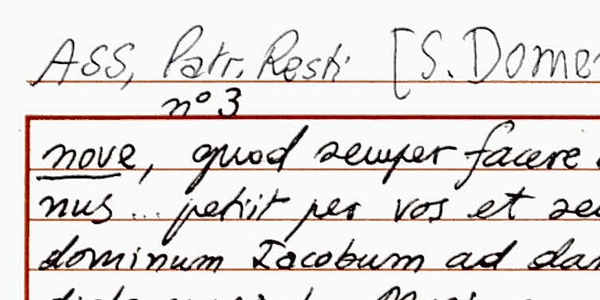 Ass, Patr. Resti [S. Dome
n° 3
nove, quod semper facere
nus... petiit per vos et se
dominum Iacobum ad dan